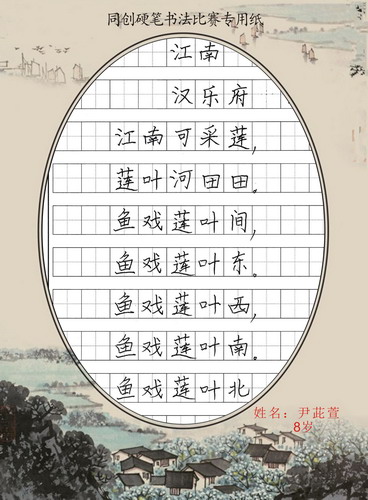 同创硬笔书法比赛专用纸
江南
汉乐府
江南可采莲,
莲叶河田田。
鱼戏莲叶间,
鱼戏莲叶东。
鱼戏莲叶西,
鱼戏莲叶南。
鱼戏莲叶北
姓名：尹芘萱
8岁